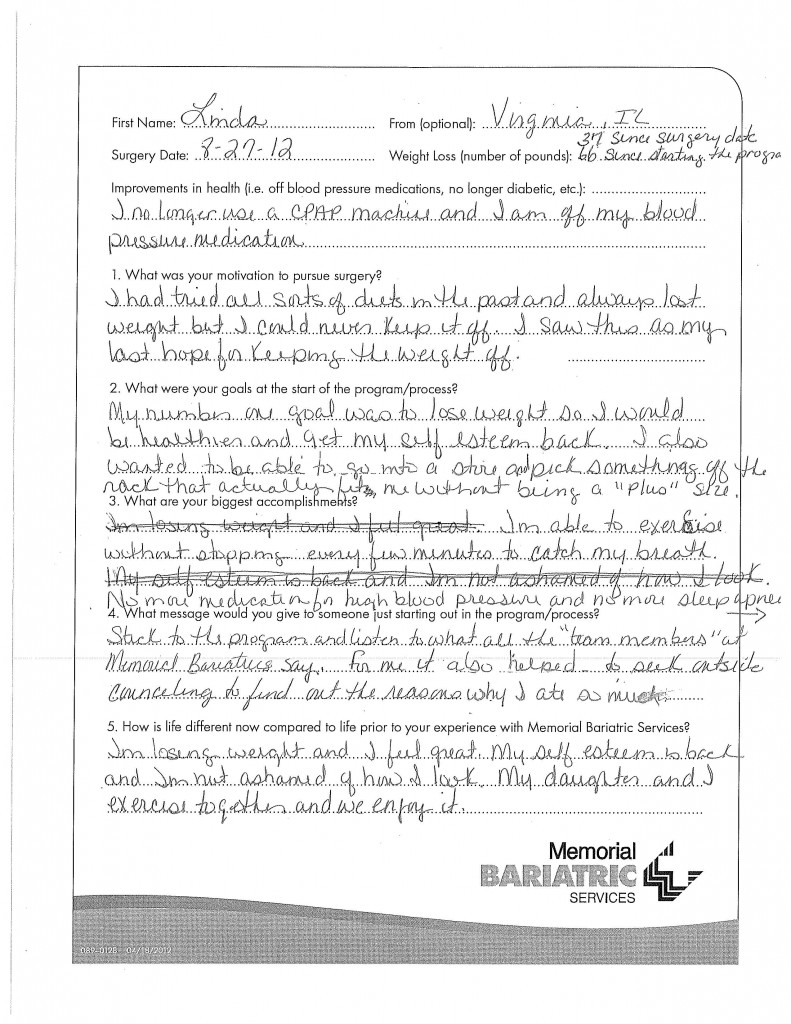 First Name: Linda From (optional): Virginia, IL
37 since surgery date
Surgery Date: 8-27-12 Weight Loss (number of pounds): 66 since starting the progra
Improvements in health (i.e. off blood pressure medications, no longer diabetic, etc.):
I no longer use a CPAP machine and I am off my blood
pressure medication
1. What was your motivation to pursue surgery?
I had tried all sorts of diets in the past and always lost
weight but I could never keep it off. I saw this as my
last hope for keeping the weight off.
2. What were your goals at the start of the program/process?
My number one goal was to lose weight so I would
be healthier and get my self esteem back. I also
wanted to be able to go into a store and pick something off the
rack that actually fits me without being a "plus" size.
3. What are your biggest accomplishments?
I'm losing weight and I feel great. I'm able to exercise
without stopping every few minutes to catch my breath.
My self esteem is back and I'm not ashamed of how I look.
No more medication for high blood pressure and no more sleep apnea
4. What message would you give to someone just starting out in the program/process?
Stick to the program and listen to what all the "team members" at
Memorial Bariatrics say. For me it also helped to seek outside
counceling to find out the reasons why I ate so much.
5. How is life different now compared to life prior to your experience with Memorial Bariatric Services?
I'm losing weight and I feel great. My self esteem is back
and I'm not ashamed of how I look. My daughter and I
exercise together and we enjoy it.
Memorial
BARIATRIC
SERVICES
089-0128 04/18/2012